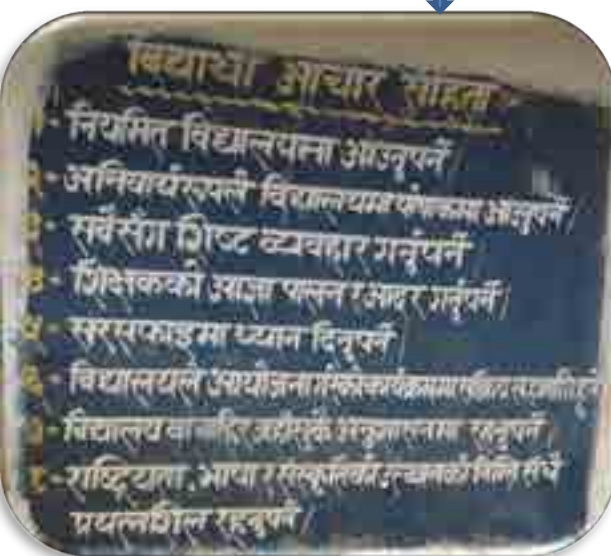 विद्यार्थी आचार संहिता
१- नियमित विद्यालयमा आउनुपर्ने।
२- अनिवार्यरुपले विद्यालयमा पोशाकमा आउनुपर्ने।
३- सवैसँग शिष्ट व्यवहार गर्नुपर्ने
४- शिक्षकको आज्ञा पालन र आदर गर्नुपर्ने।
५- सरसफाइमा ध्यान दिनुपर्ने।
६- विद्यालयले आयोजना गरेको कार्यक्रममा
७- विद्यालय वा बाहिर अनुशासनमा रहनुपर्ने।
८- राष्ट्रियता, भाषा र संस्कृतिको उत्थानको निम्ति सधैं
प्रयत्नशिल रहनुपर्ने।